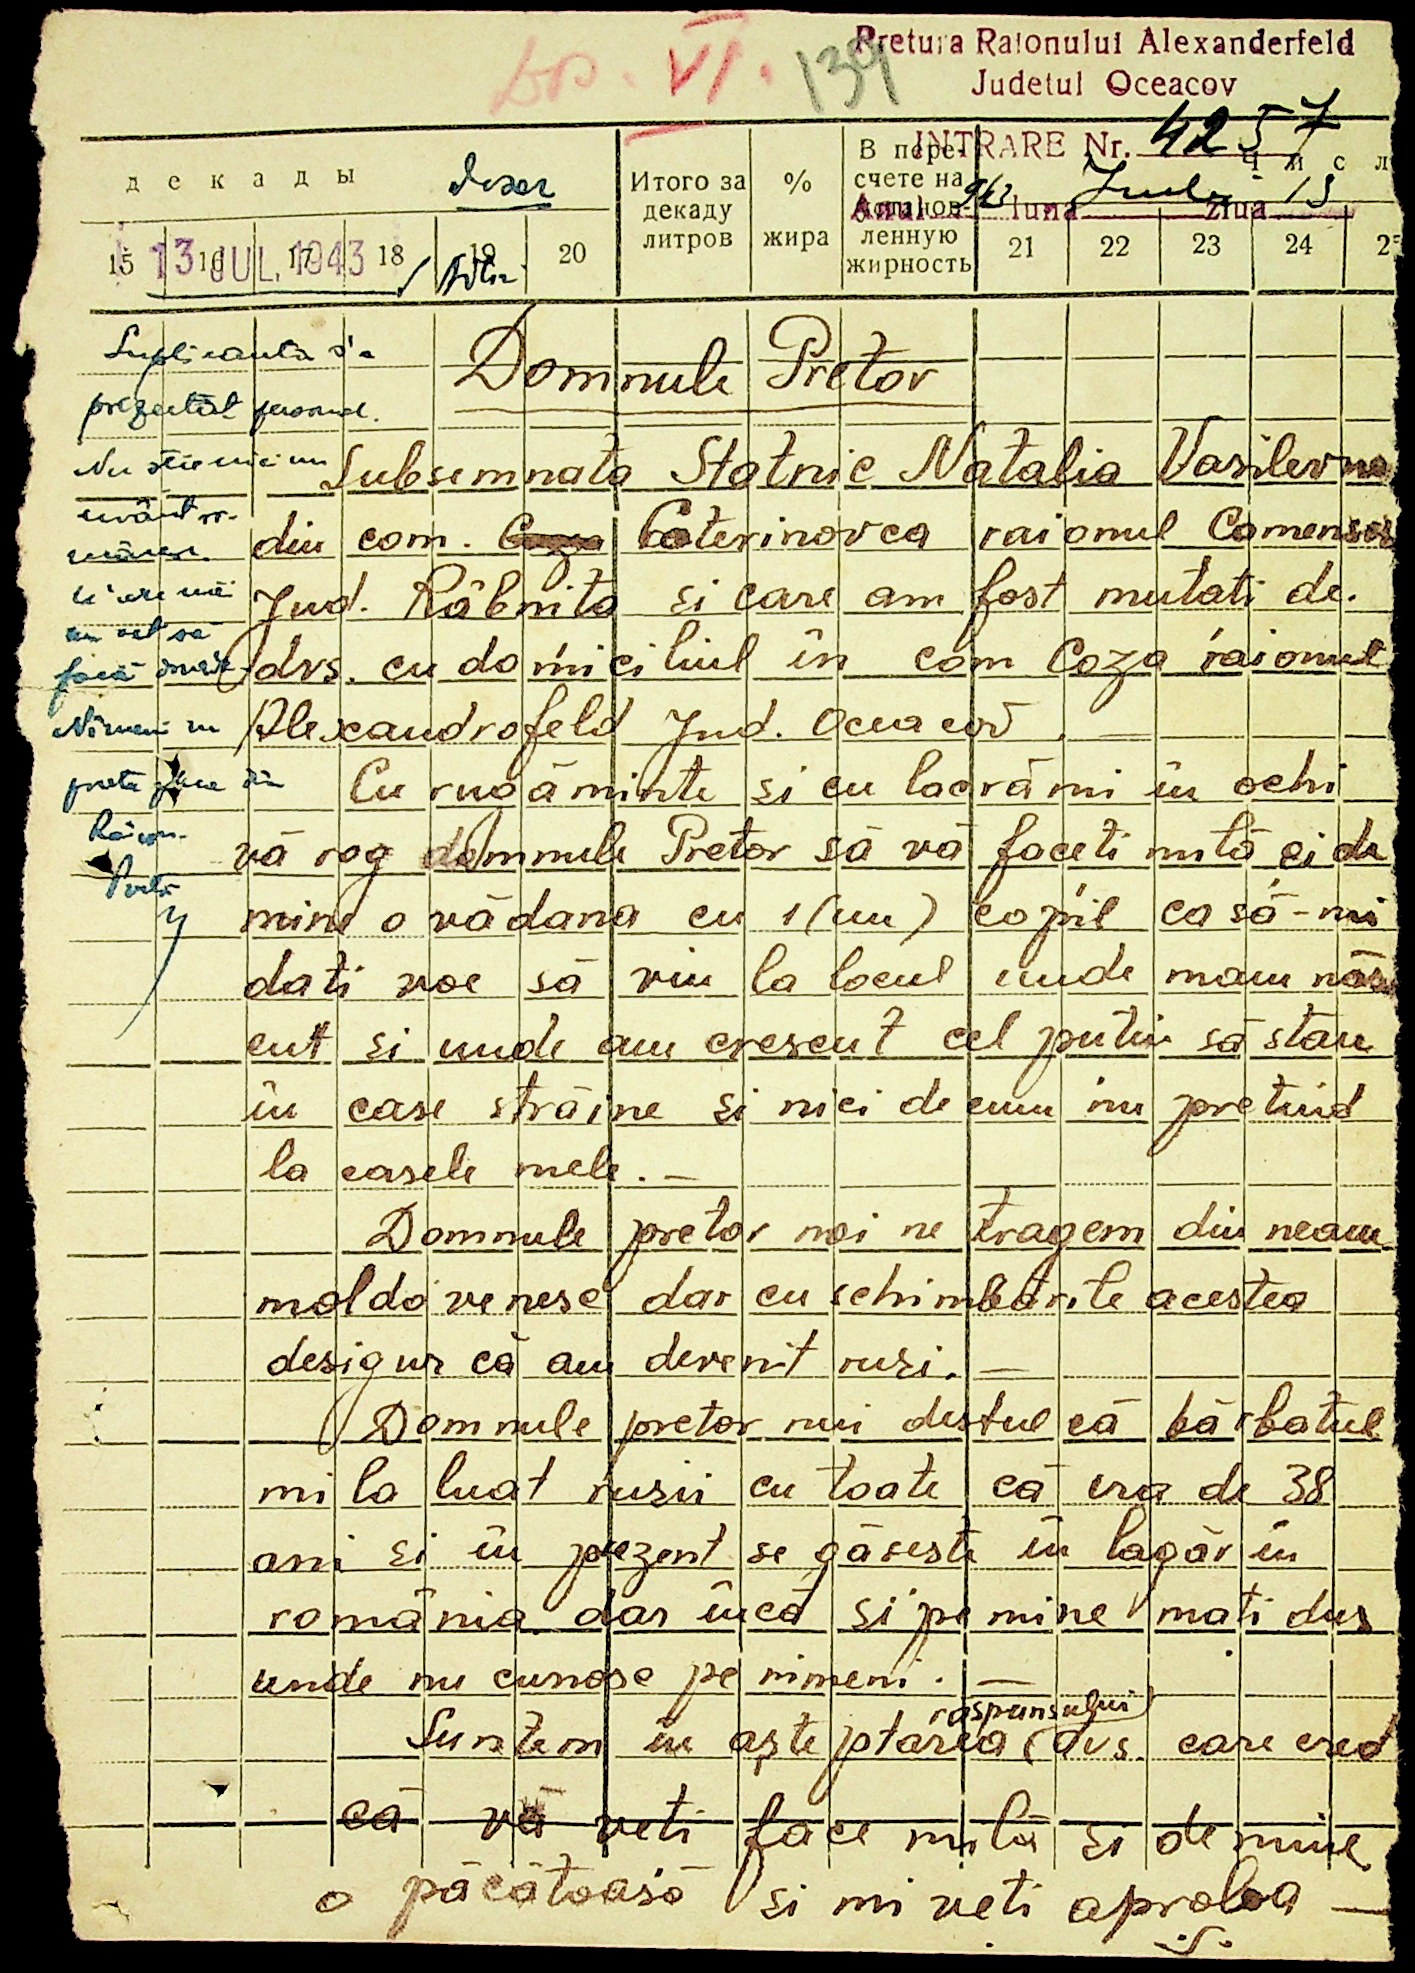 Dos. VI. 139
Pretura Raionului Alexanderfeld
Judetul Oceacov
INTRARE Nr. 4257
Anul 943 luna Iuli ziua 13
декады
Итого за декаду литров
% жира
В пере-счете на установ-ленную жирность
числ
15 16 17 18 19 20 21 22 23 24 2
13 IUL. 1943
Suplicanta s'a
prezentat personal.
Nu știe nici un
cuvânt ro-
mânesc.
Nimeni nu
Domnule Pretor
Subsemnata Statnic Natalia Vasilevna
din com. Caterinovca raionul Camensca
Jud. Râbnita si care am fost mutati de
dvs. cu domiciliul în com Coza raionul
Alexandrofeld Jud. Oceacov. —
Cu rugăminte si cu lacrămi în ochi
vă rog domnule Pretor să vă faceti milă si de
mine o vădana cu 1 (un) copil ca să-mi
dati voe să viu la locul unde mam năs
cut si unde am crescut cel putin să stau
în case străine si nici decum nu pretind
la casele mele. —
Domnule pretor noi ne tragem din neam
moldovenesc dar cu schimbările acestea
desigur că am devenit rusi. —
Domnule pretor nui destul că bărbatul
mi la luat rusii cu toate că era de 38
ani si în prezent se găseste în lagăr în
românia dar încă si pe mine mati dus
unde nu cunosc pe nimeni. —
Suntem în așteptarea răspunsului dvs. care cred
că vă veti face milă si de mine
o păcătoasă si mi veti aproba —